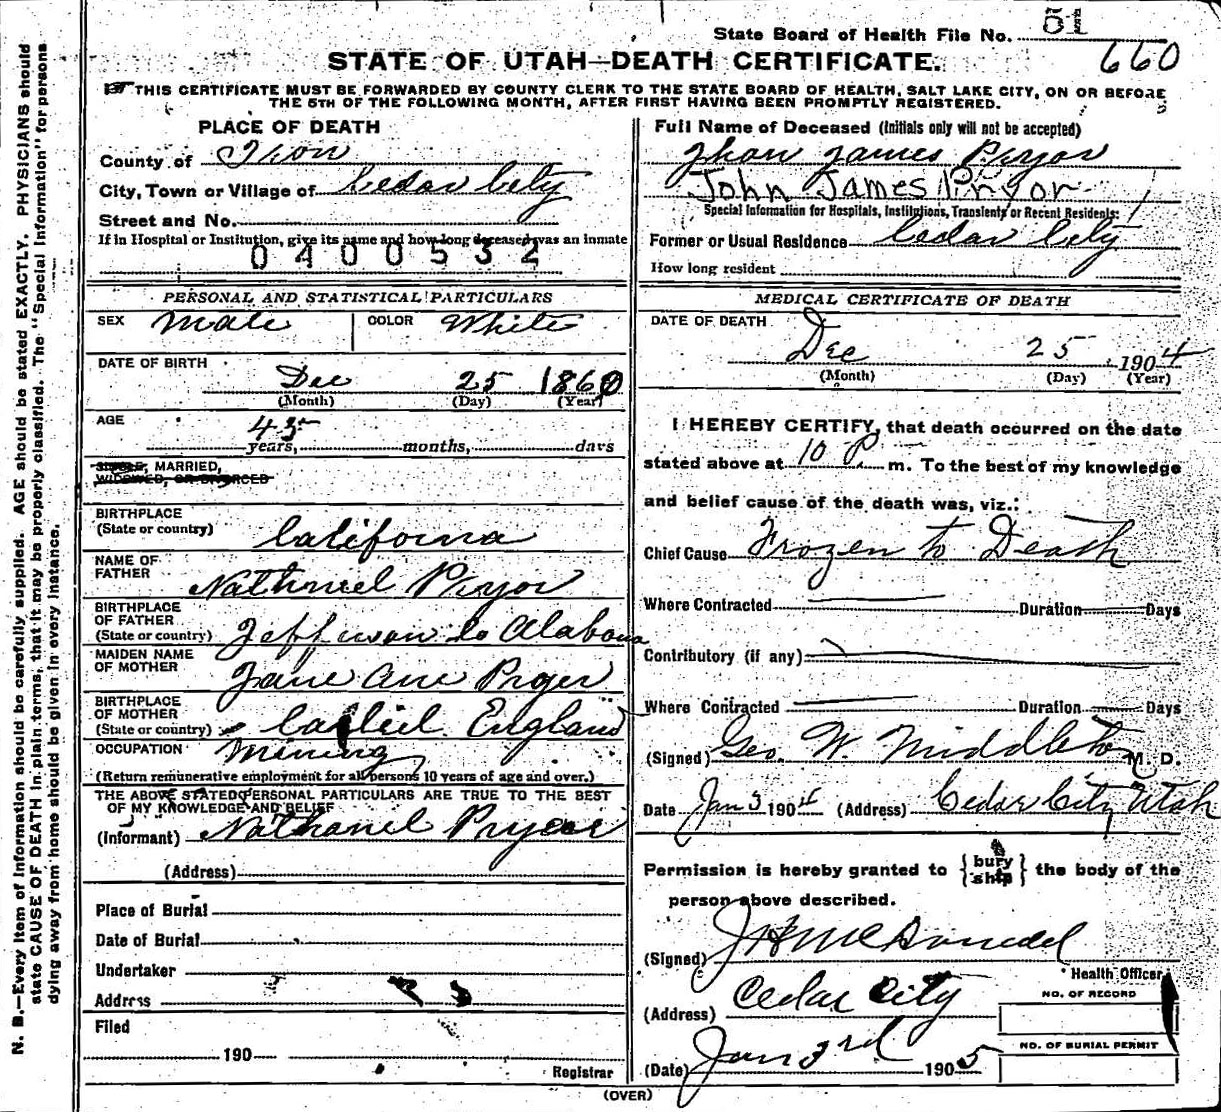 State Board of Health File No. 51
660
STATE OF UTAH—DEATH CERTIFICATE.
THIS CERTIFICATE MUST BE FORWARDED BY COUNTY CLERK TO THE STATE BOARD OF HEALTH, SALT LAKE CITY, ON OR BEFORE
THE 5TH OF THE FOLLOWING MONTH, AFTER FIRST HAVING BEEN PROMPTLY REGISTERED.
N. B.—Every item of information should be carefully supplied. AGE should be stated EXACTLY. PHYSICIANS should
state CAUSE OF DEATH in plain terms, that it may be properly classified. The "Special Information" for persons
dying away from home should be given in every instance.
PLACE OF DEATH
County of Iron
City, Town or Village of Cedar City
Street and No.
If in Hospital or Institution, give its name and how long deceased was an inmate
0400532
PERSONAL AND STATISTICAL PARTICULARS
SEX Male COLOR White
DATE OF BIRTH
Dec 25 1860
(Month) (Day) (Year)
AGE 45
years, months, days
SINGLE, MARRIED,
WIDOWED, OR DIVORCED
BIRTHPLACE
(State or country) California
NAME OF
FATHER Nathaniel Pryor
BIRTHPLACE
OF FATHER
(State or country) Jefferson Co Alabama
MAIDEN NAME
OF MOTHER Jane Ane Pryer
BIRTHPLACE
OF MOTHER
(State or country) England
OCCUPATION Mining
(Return remunerative employment for all persons 10 years of age and over.)
THE ABOVE STATED PERSONAL PARTICULARS ARE TRUE TO THE BEST
OF MY KNOWLEDGE AND BELIEF
(Informant) Nathanel Pryor
(Address)
Place of Burial
Date of Burial
Undertaker
Address
Filed
190
Registrar
Full Name of Deceased (Initials only will not be accepted)
Jhon James Pryor
John James Pryor
Special Information for Hospitals, Institutions, Transients or Recent Residents:
Former or Usual Residence Cedar City
How long resident
MEDICAL CERTIFICATE OF DEATH
DATE OF DEATH
Dec 25 1904
(Month) (Day) (Year)
I HEREBY CERTIFY, that death occurred on the date
stated above at 10 P. m. To the best of my knowledge
and belief cause of the death was, viz.:
Chief Cause Frozen to Death
Where Contracted Duration Days
Contributory (if any)
Where Contracted Duration Days
(Signed) Geo. W. Middleton M. D.
Date Jan 3 1904 (Address) Cedar City Utah
Permission is hereby granted to { bury ship } the body of the
person above described.
(Signed) J H McDonedel
Health Officer
(Address) Cedar City
NO. OF RECORD
NO. OF BURIAL PERMIT
(Date) Jan 3rd 1905
(OVER)